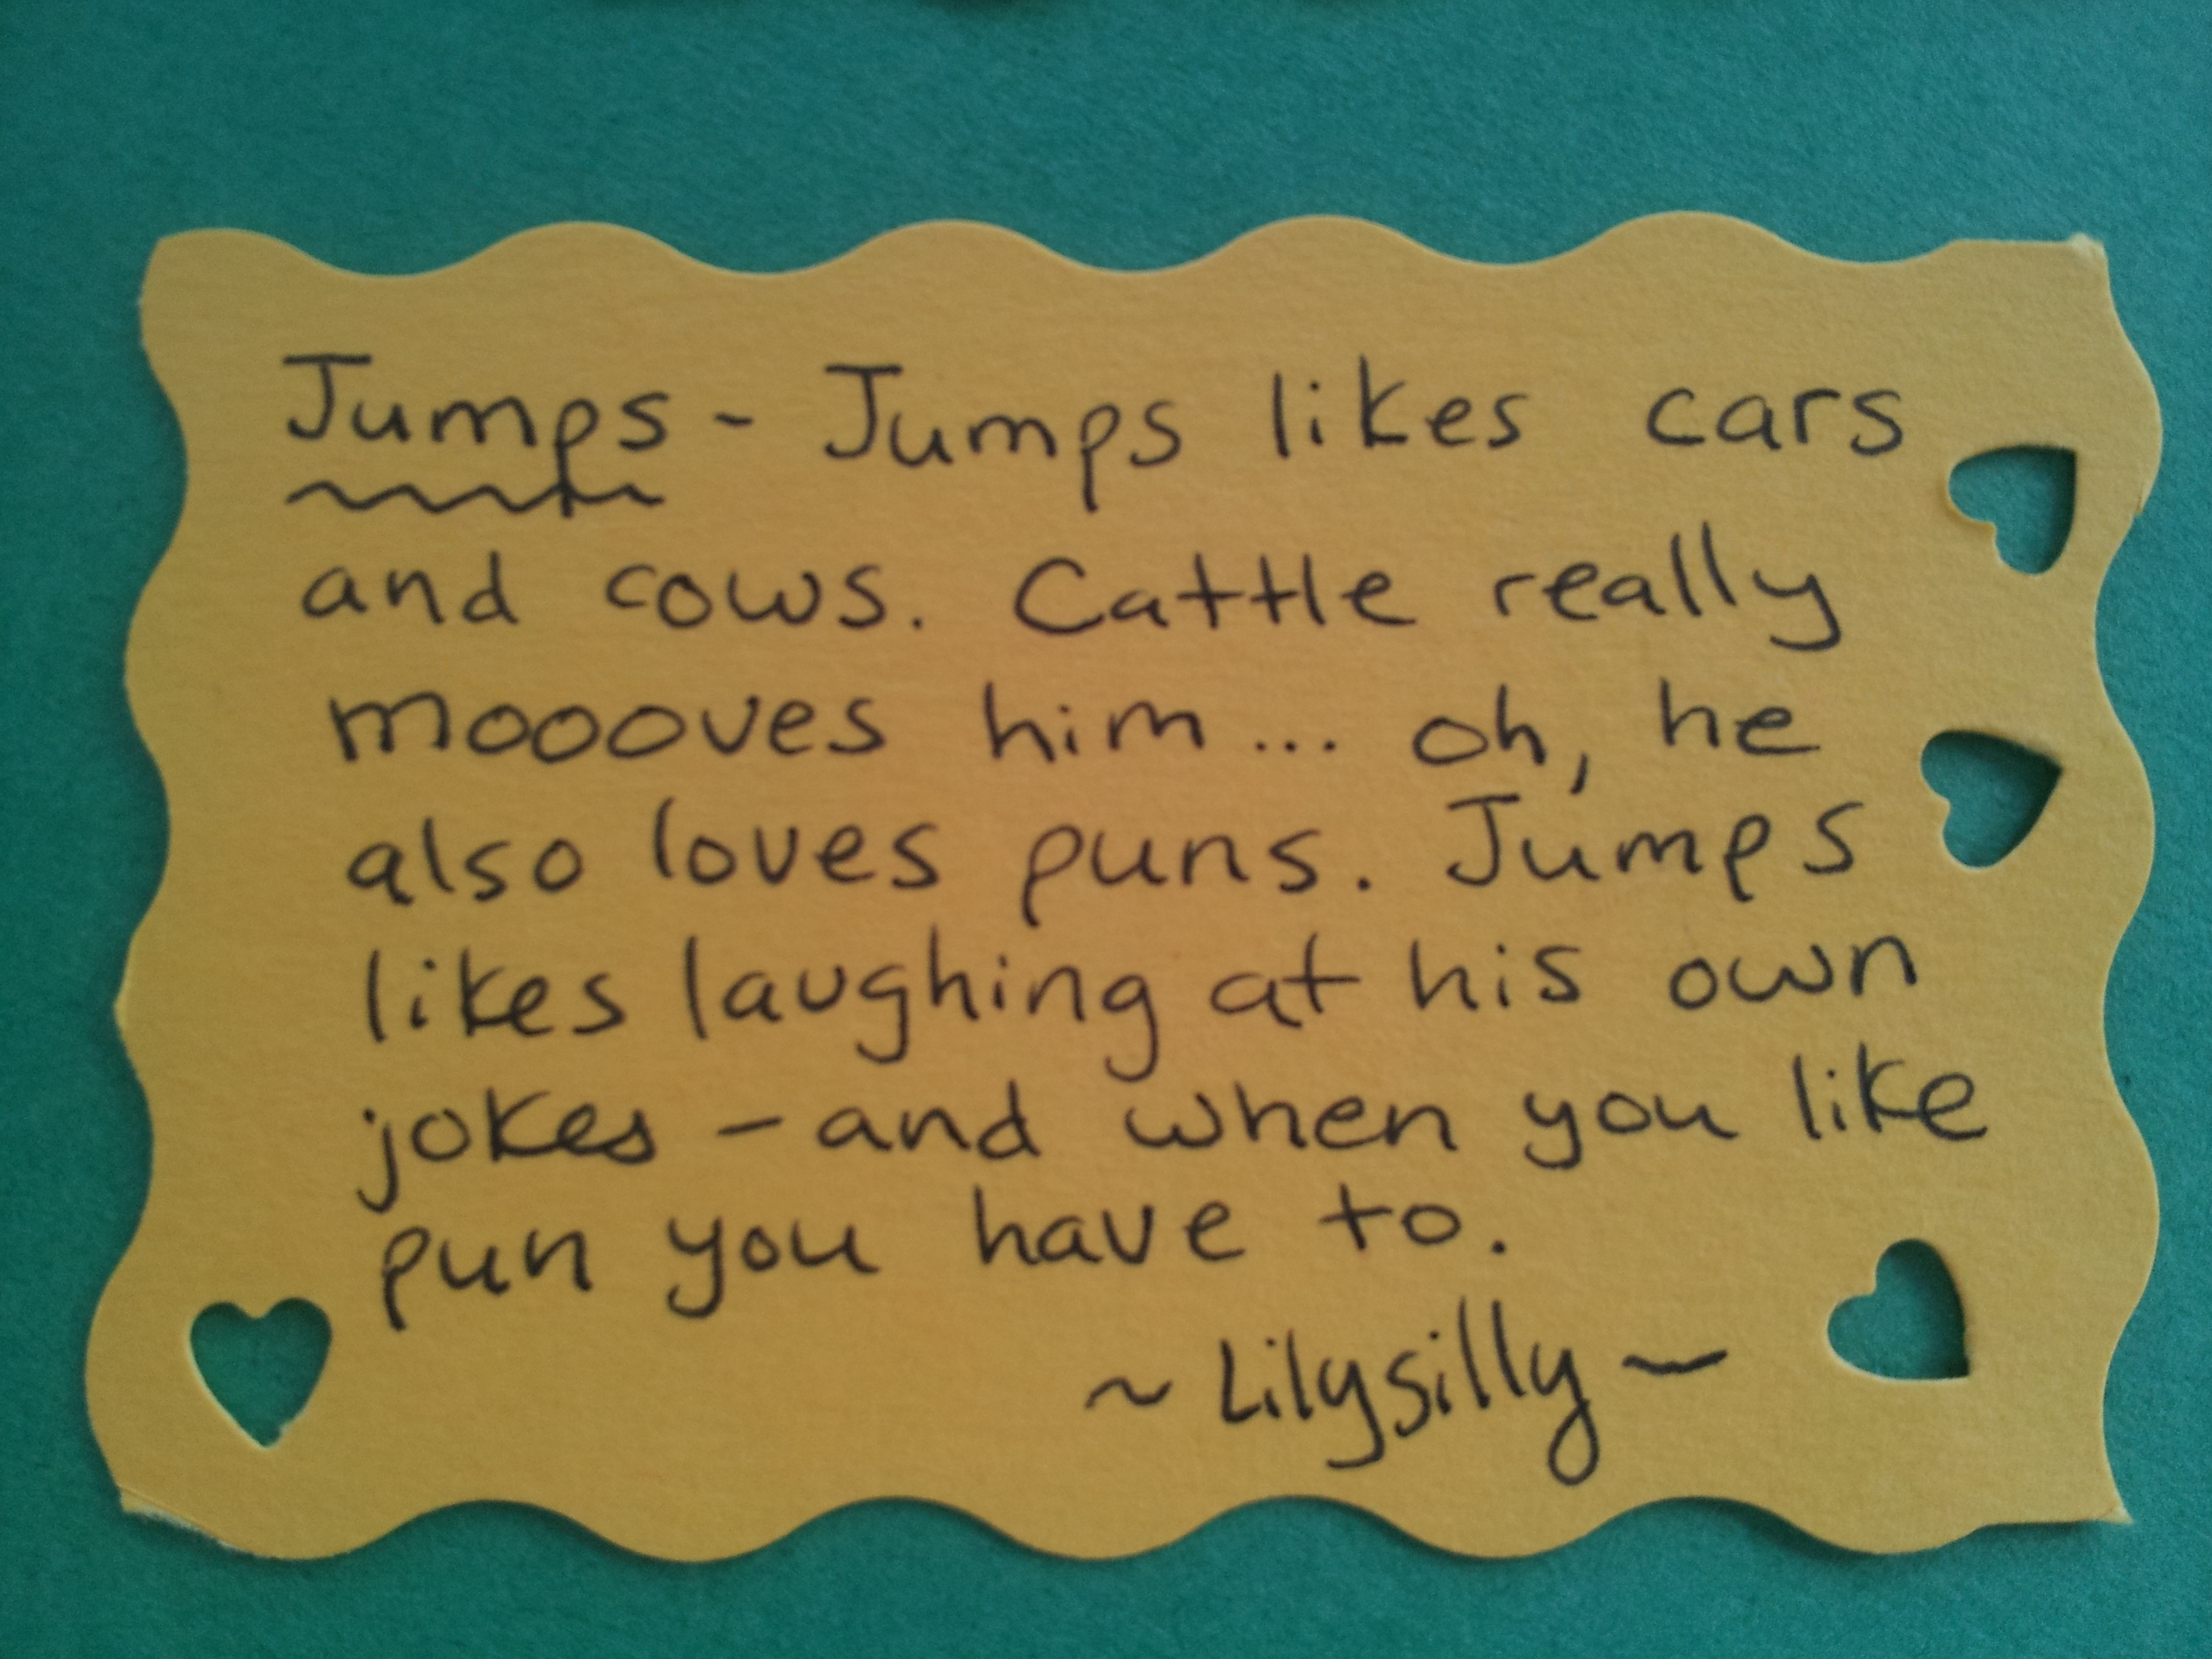 Jumps - Jumps likes cars
and cows. Cattle really
moooves him... oh, he
also loves puns. Jumps
likes laughing at his own
jokes - and when you like
pun you have to.
~ Lilysilly ~